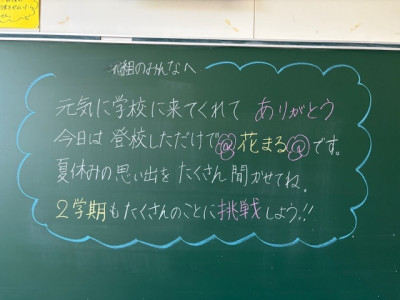 組のみんなへ
元気に学校に来てくれて ありがとう
今日は 登校しただけで 花まる です。
夏休みの思い出を たくさん聞かせてね。
2学期もたくさんのことに挑戦しよう!!